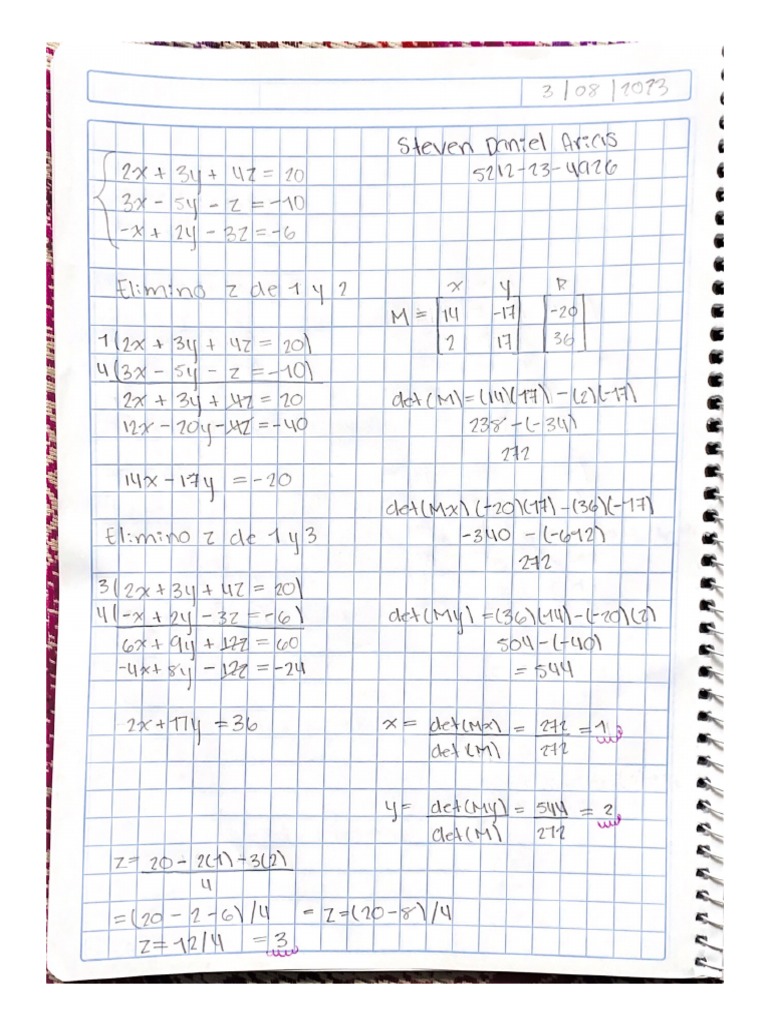 3/08/2023
Steven Daniel Arias
5212-23-4926
2x + 3y + 4z = 20
3x - 5y - z = -10
-x + 2y - 3z = -6
Elimino z de 1 y 2
1(2x + 3y + 4z = 20)
4(3x - 5y - z = -10)
2x + 3y + 4z = 20
12x - 20y - 4z = -40
14x - 17y = -20
Elimino z de 1 y 3
3(2x + 3y + 4z = 20)
4(-x + 2y - 3z = -6)
6x + 9y + 12z = 60
-4x + 8y - 12z = -24
2x + 17y = 36
x y R
M = [14 -17] [-20]
[2 17] [36]
det(M) = (14)(17) - (2)(-17)
238 - (-34)
272
det(Mx) (-20)(17) - (36)(-17)
-340 - (-612)
272
det(My) = (36)(14) - (-20)(2)
504 - (-40)
= 544
x = det(Mx) = 272 = 1
det(M) 272
y = det(My) = 544 = 2
det(M) 272
z = 20 - 2(1) - 3(2)
4
= (20 - 2 - 6)/4 = z = (20 - 8)/4
z = 12/4 = 3